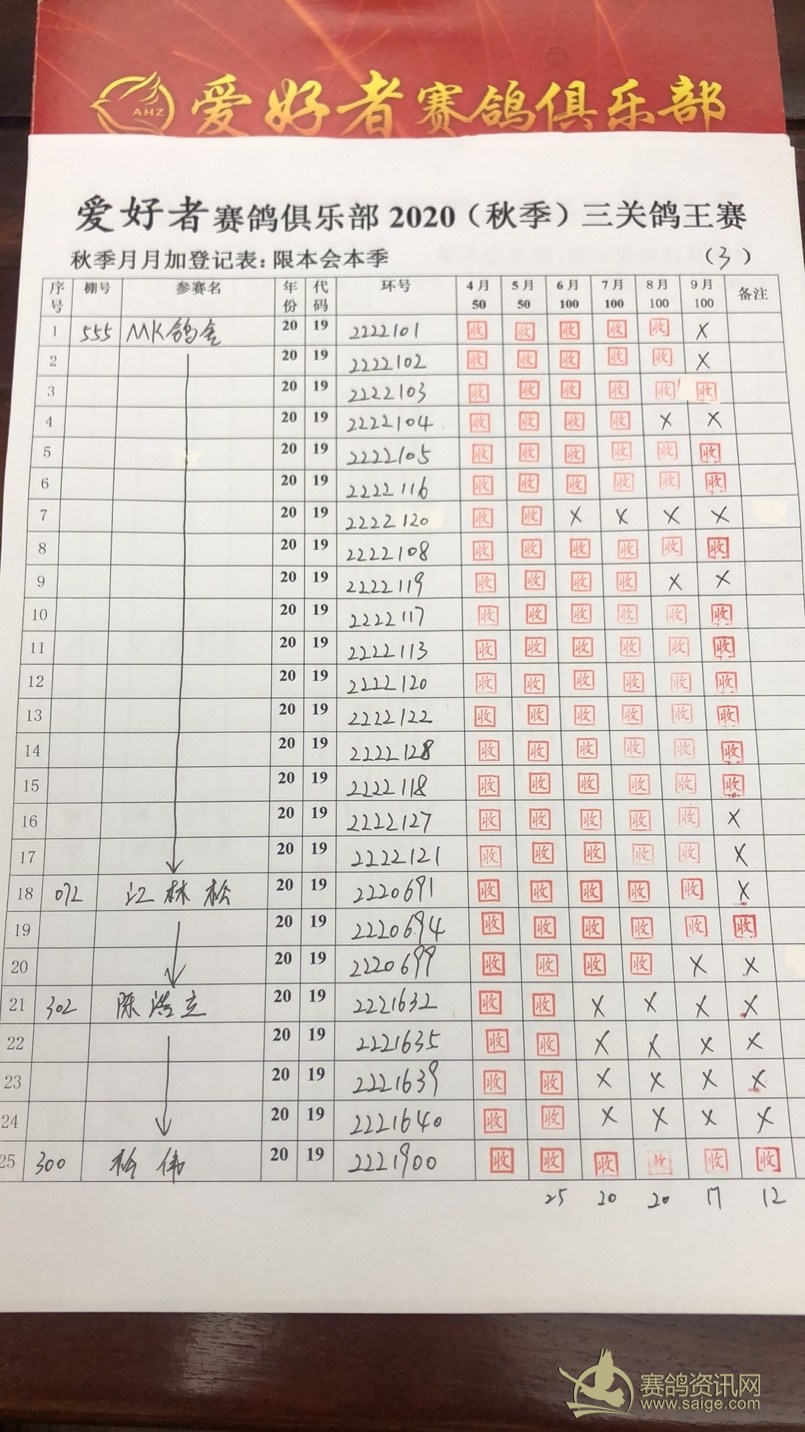 AHZ 爱好者赛鸽俱乐部
爱好者赛鸽俱乐部 2020（秋季）三关鸽王赛
秋季月月加登记表：限本会本季 （3）
序号 棚号 参赛名 年份 代码 环号 4月50 5月50 6月100 7月100 8月100 9月100 备注
1 555 MK鸽舍 20 19 2222101 收 收 收 收 收 X
2 20 19 2222102 收 收 收 收 收 X
3 20 19 2222103 收 收 收 收 收 收
4 20 19 2222104 收 收 收 收 X X
5 20 19 2222105 收 收 收 收 收 收
6 20 19 2222116 收 收 收 收 收 收
7 20 19 2222120 收 收 X X X X
8 20 19 2222108 收 收 收 收 收 收
9 20 19 2222119 收 收 收 收 X X
10 20 19 2222117 收 收 收 收 收 收
11 20 19 2222113 收 收 收 收 收 收
12 20 19 2222120 收 收 收 收 收 收
13 20 19 2222122 收 收 收 收 收 收
14 20 19 2222128 收 收 收 收 收 收
15 20 19 2222118 收 收 收 收 收 收
16 20 19 2222127 收 收 收 收 收 X
17 20 19 2222121 收 收 收 收 收 X
18 072 江林松 20 19 2220691 收 收 收 收 收 X
19 20 19 2220694 收 收 收 收 收 收
20 20 19 2220699 收 收 收 收 X X
21 302 陈浩立 20 19 2221632 收 收 X X X X
22 20 19 2221635 收 收 X X X X
23 20 19 2221639 收 收 X X X X
24 20 19 2221640 收 收 X X X X
25 300 伟 20 19 2221900 收 收 收 收 收 收
25 20 20 17 12
赛鸽资讯网
www.saige.com